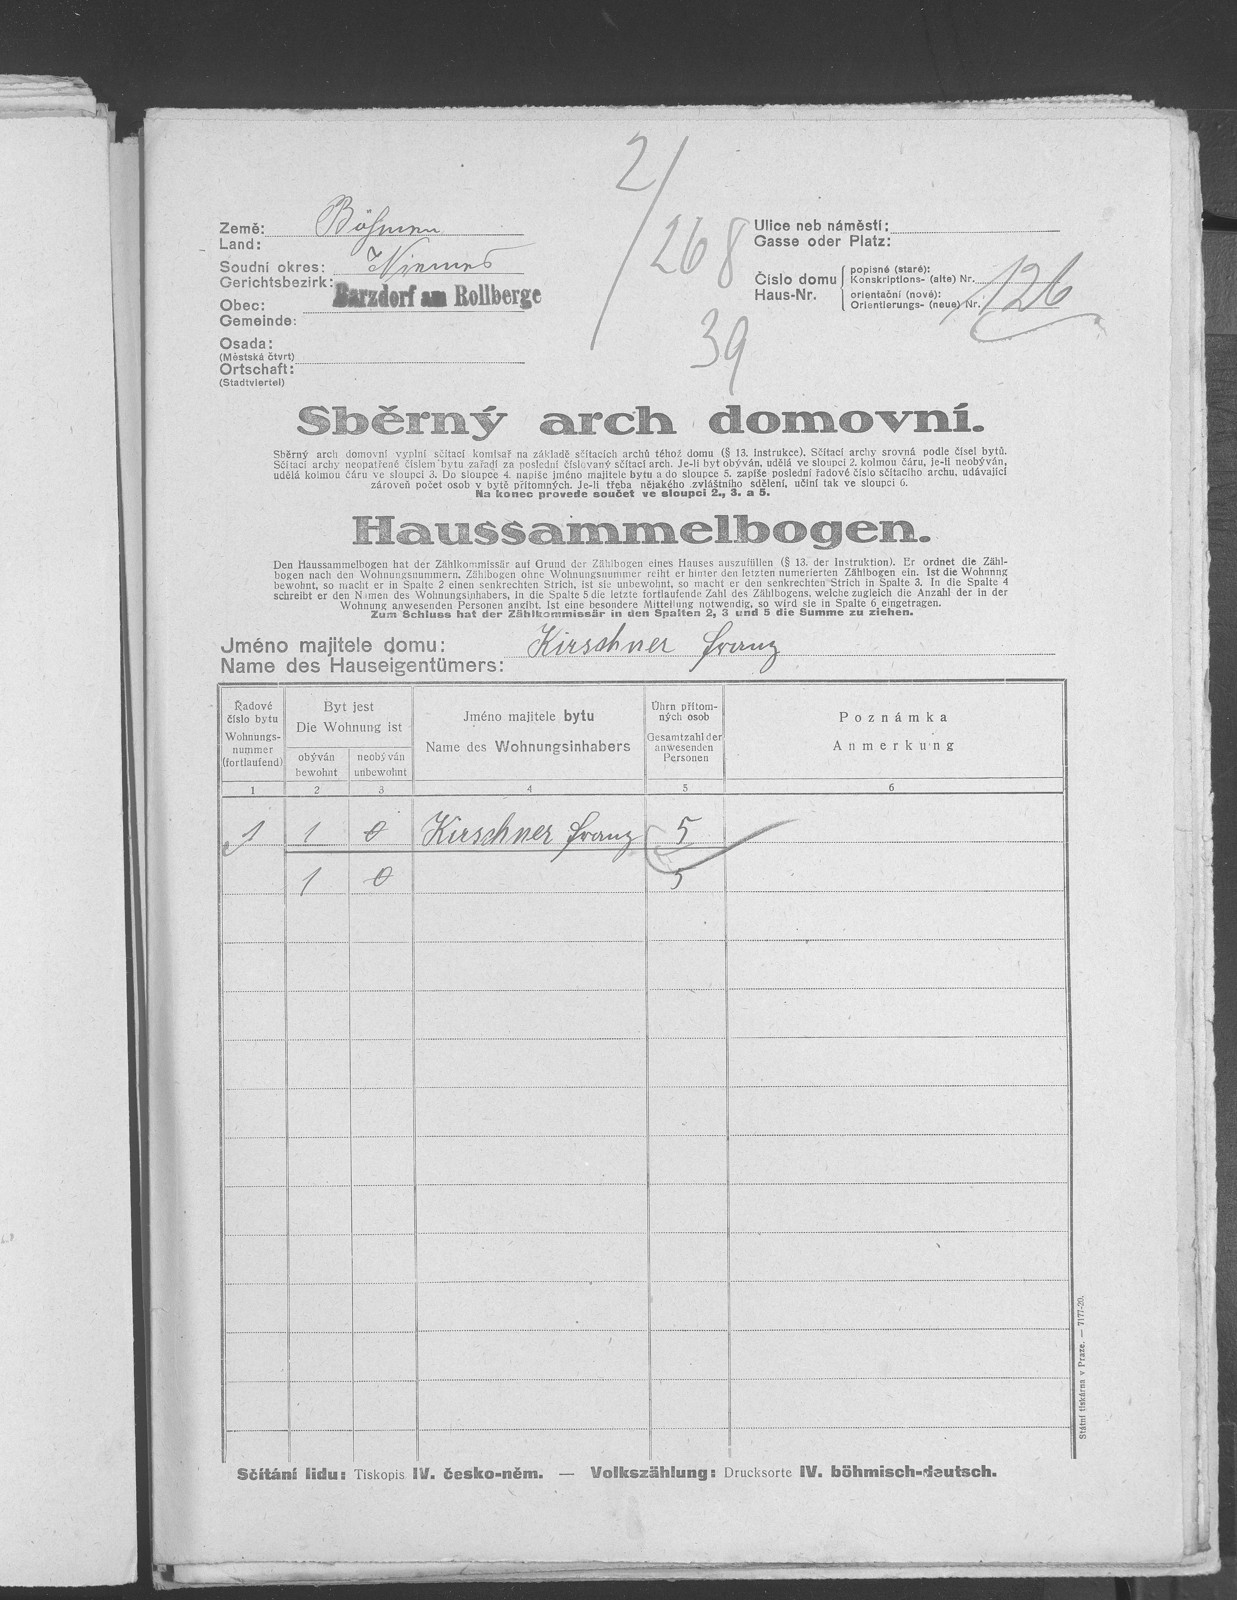 2/
268
39
Země: Böhmen
Land:
Soudní okres: Niemes
Gerichtsbezirk:
Obec: Barzdorf am Rollberge
Gemeinde:
Osada:
(Městská čtvrt)
Ortschaft:
(Stadtviertel)
Ulice neb náměstí:
Gasse oder Platz:
Číslo domu
Haus-Nr.
popisné (staré):
Konskriptions- (alte) Nr.
orientační (nové):
Orientierungs- (neue) Nr.
126
Sběrný arch domovní.
Sběrný arch domovní vyplní sčítací komisař na základě sčítacích archů téhož domu (§ 13. instrukce). Sčítací archy srovná podle čísel bytů.
Sčítací archy neopatřené číslem bytu zařadí za poslední číslovaný sčítací arch. Je-li byt obýván, udělá ve sloupci 2. kolmou čáru, je-li neobýván,
udělá kolmou čáru ve sloupci 3. Do sloupce 4. napíše jméno majitele bytu a do sloupce 5. zapíše poslední řadové číslo sčítacího archu, udávající
zároveň počet osob v bytě přítomných. Je-li třeba nějakého zvláštního sdělení, učiní tak ve sloupci 6.
Na konec provede součet ve sloupci 2., 3. a 5.
Haussammelbogen.
Den Haussammelbogen hat der Zählkommissär auf Grund der Zählbogen eines Hauses auszufüllen (§ 13. der Instruktion). Er ordnet die Zähl-
bogen nach den Wohnungsnummern. Zählbogen ohne Wohnungsnummer reiht er hinter den letzten numerierten Zählbogen ein. Ist die Wohnung
bewohnt, so macht er in Spalte 2 einen senkrechten Strich, ist sie unbewohnt, so macht er den senkrechten Strich in Spalte 3. In die Spalte 4
schreibt er den Namen des Wohnungsinhabers, in die Spalte 5 die letzte fortlaufende Zahl des Zählbogens, welche zugleich die Anzahl der in der
Wohnung anwesenden Personen angibt. Ist eine besondere Mitteilung notwendig, so wird sie in Spalte 6 eingetragen.
Zum Schluss hat der Zählkommissär in den Spalten 2, 3 und 5 die Summe zu ziehen.
Jméno majitele domu: Kirschner Franz
Name des Hauseigentümers:
Řadové
číslo bytu
Wohnungs-
nummer
(fortlaufend)
Byt jest
Die Wohnung ist
obýván
bewohnt
neobýván
unbewohnt
Jméno majitele bytu
Name des Wohnungsinhabers
Úhrn přítom-
ných osob
Gesamtzahl der
anwesenden
Personen
Poznámka
Anmerkung
1 2 3 4 5 6
1 1 0 Kirschner Franz 5
1 0 5
Sčítání lidu: Tiskopis IV. česko-něm. — Volkszählung: Drucksorte IV. böhmisch-deutsch.
Státní tiskárna v Praze. — 7177-20.